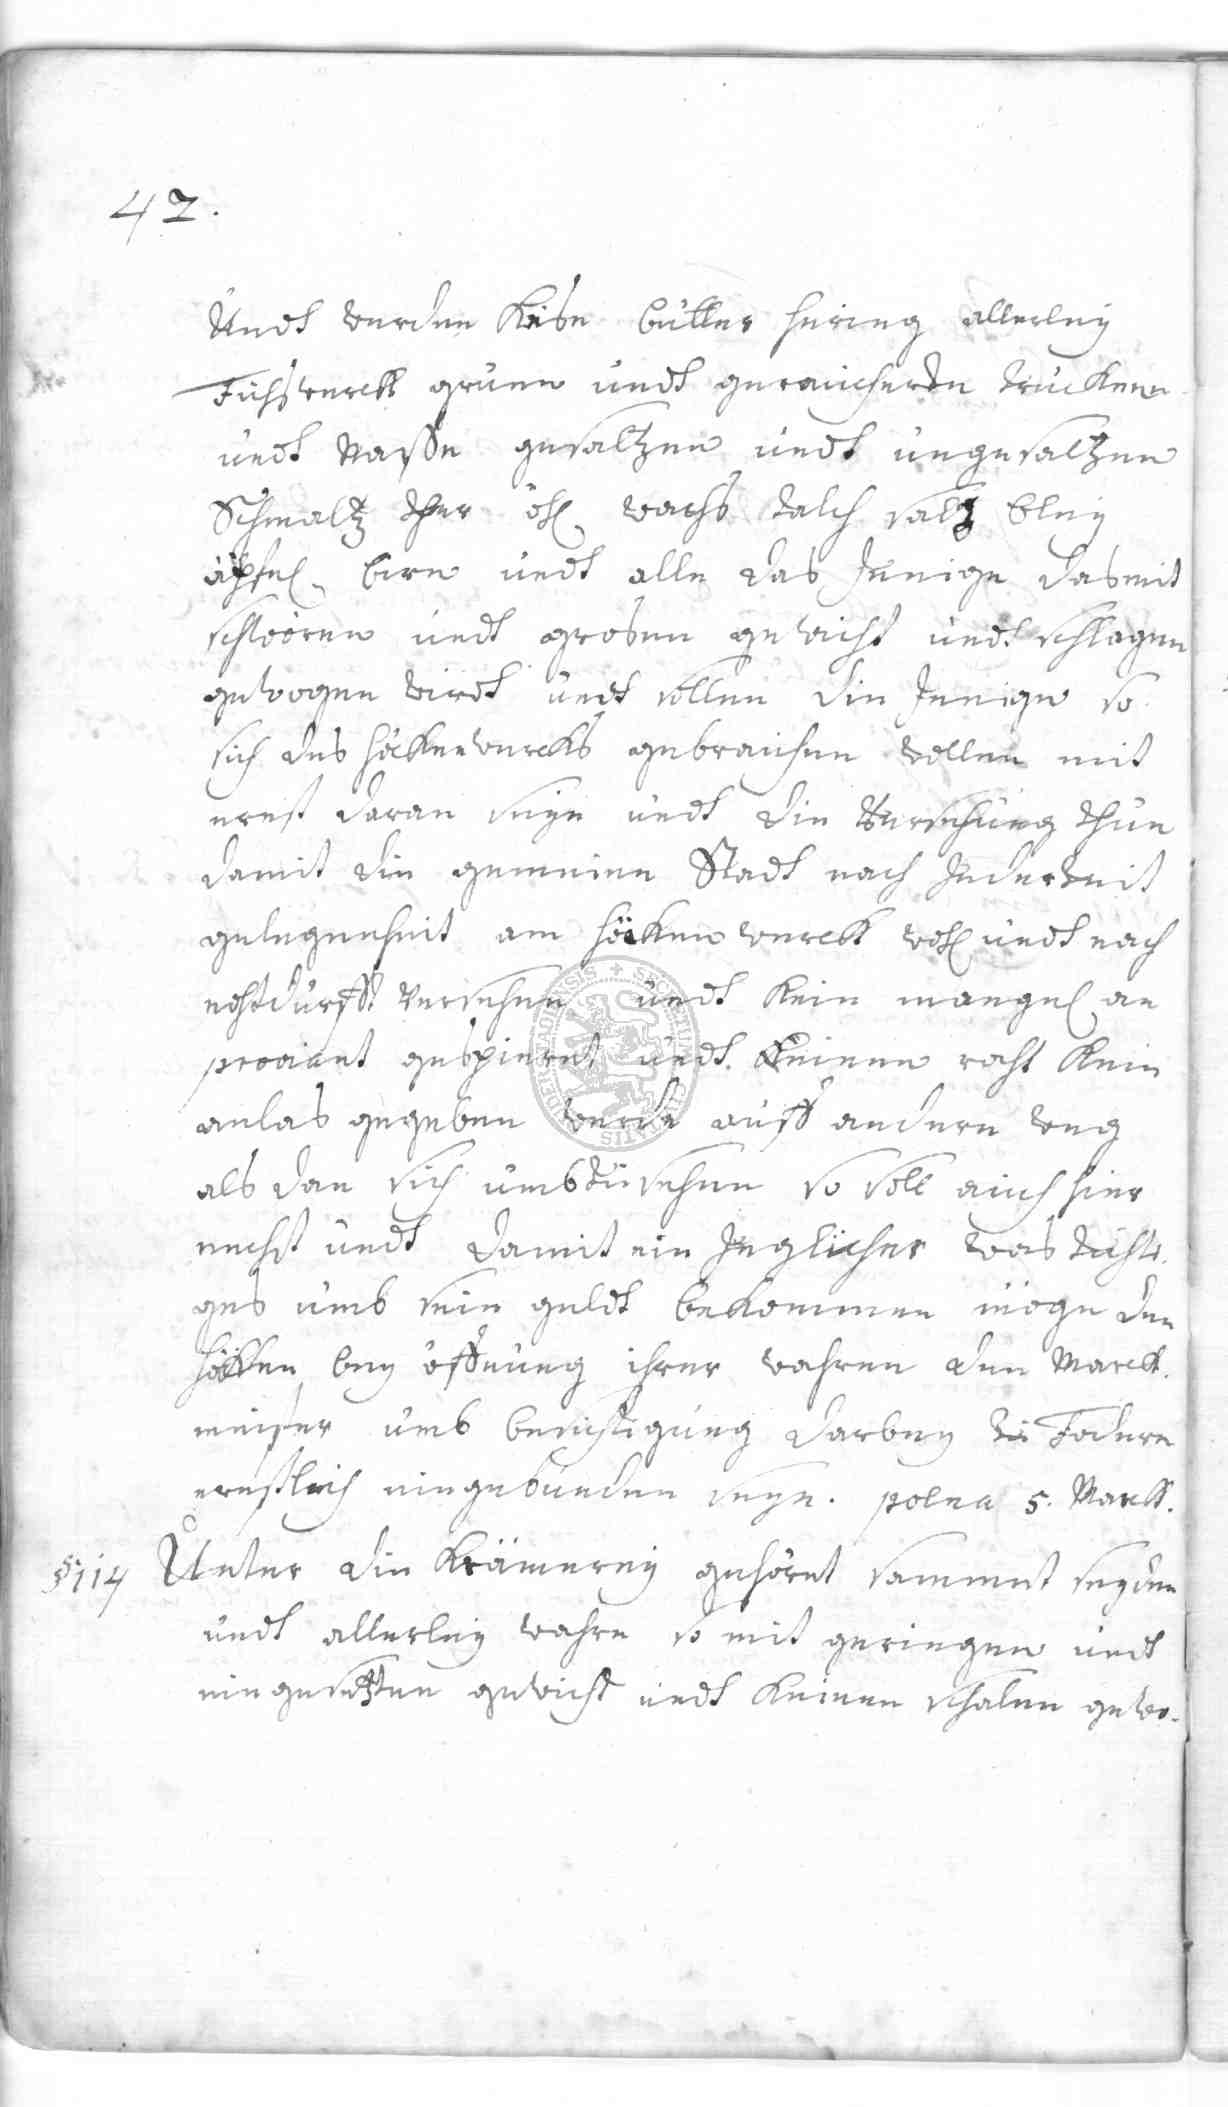 42.
Undt werden Käse butter hering allerley
Fischwerck gruen undt gereucherte truckene
undt Nasse gesaltzen undt ungesaltzen
Schmaltz Theer öhl wachs talch saltz bley
äpfel birn undt alle das Jenige das mit
schworen undt grosen gewicht undt schlagen
gewogen wirdt undt sollen die Jenige so
sich des höckenwercks gebrauchen wollen mit
ernst daran seyn undt die Versehung thun
damit die gemeine Stadt nach Jederzeit
gelegenheit am höcken werck wohl undt nach
nohtdurfft versehen undt kein mangel an
proviant gespieret undt Keinem raht Kein
anlas gegeben werde auff andere weg
als dan sich umbzusehen so soll auch hier
nechst undt damit ein Jeglicher was tüchti-
ges umb sein geldt bekommen möge den
höcken bey öffnung ihrer wahren den Marck-
meister umb besichtigung darbey zu Fodern
ernstlich eingebunden seyn. poena 5. Marck.
§ 114 Unter die Krämerey gehöret sammet seyden
undt allerley wahre so mit geringen undt
eingesetzten gewicht undt kleinen schalen gewo-
SECRETUM CIVITATIS